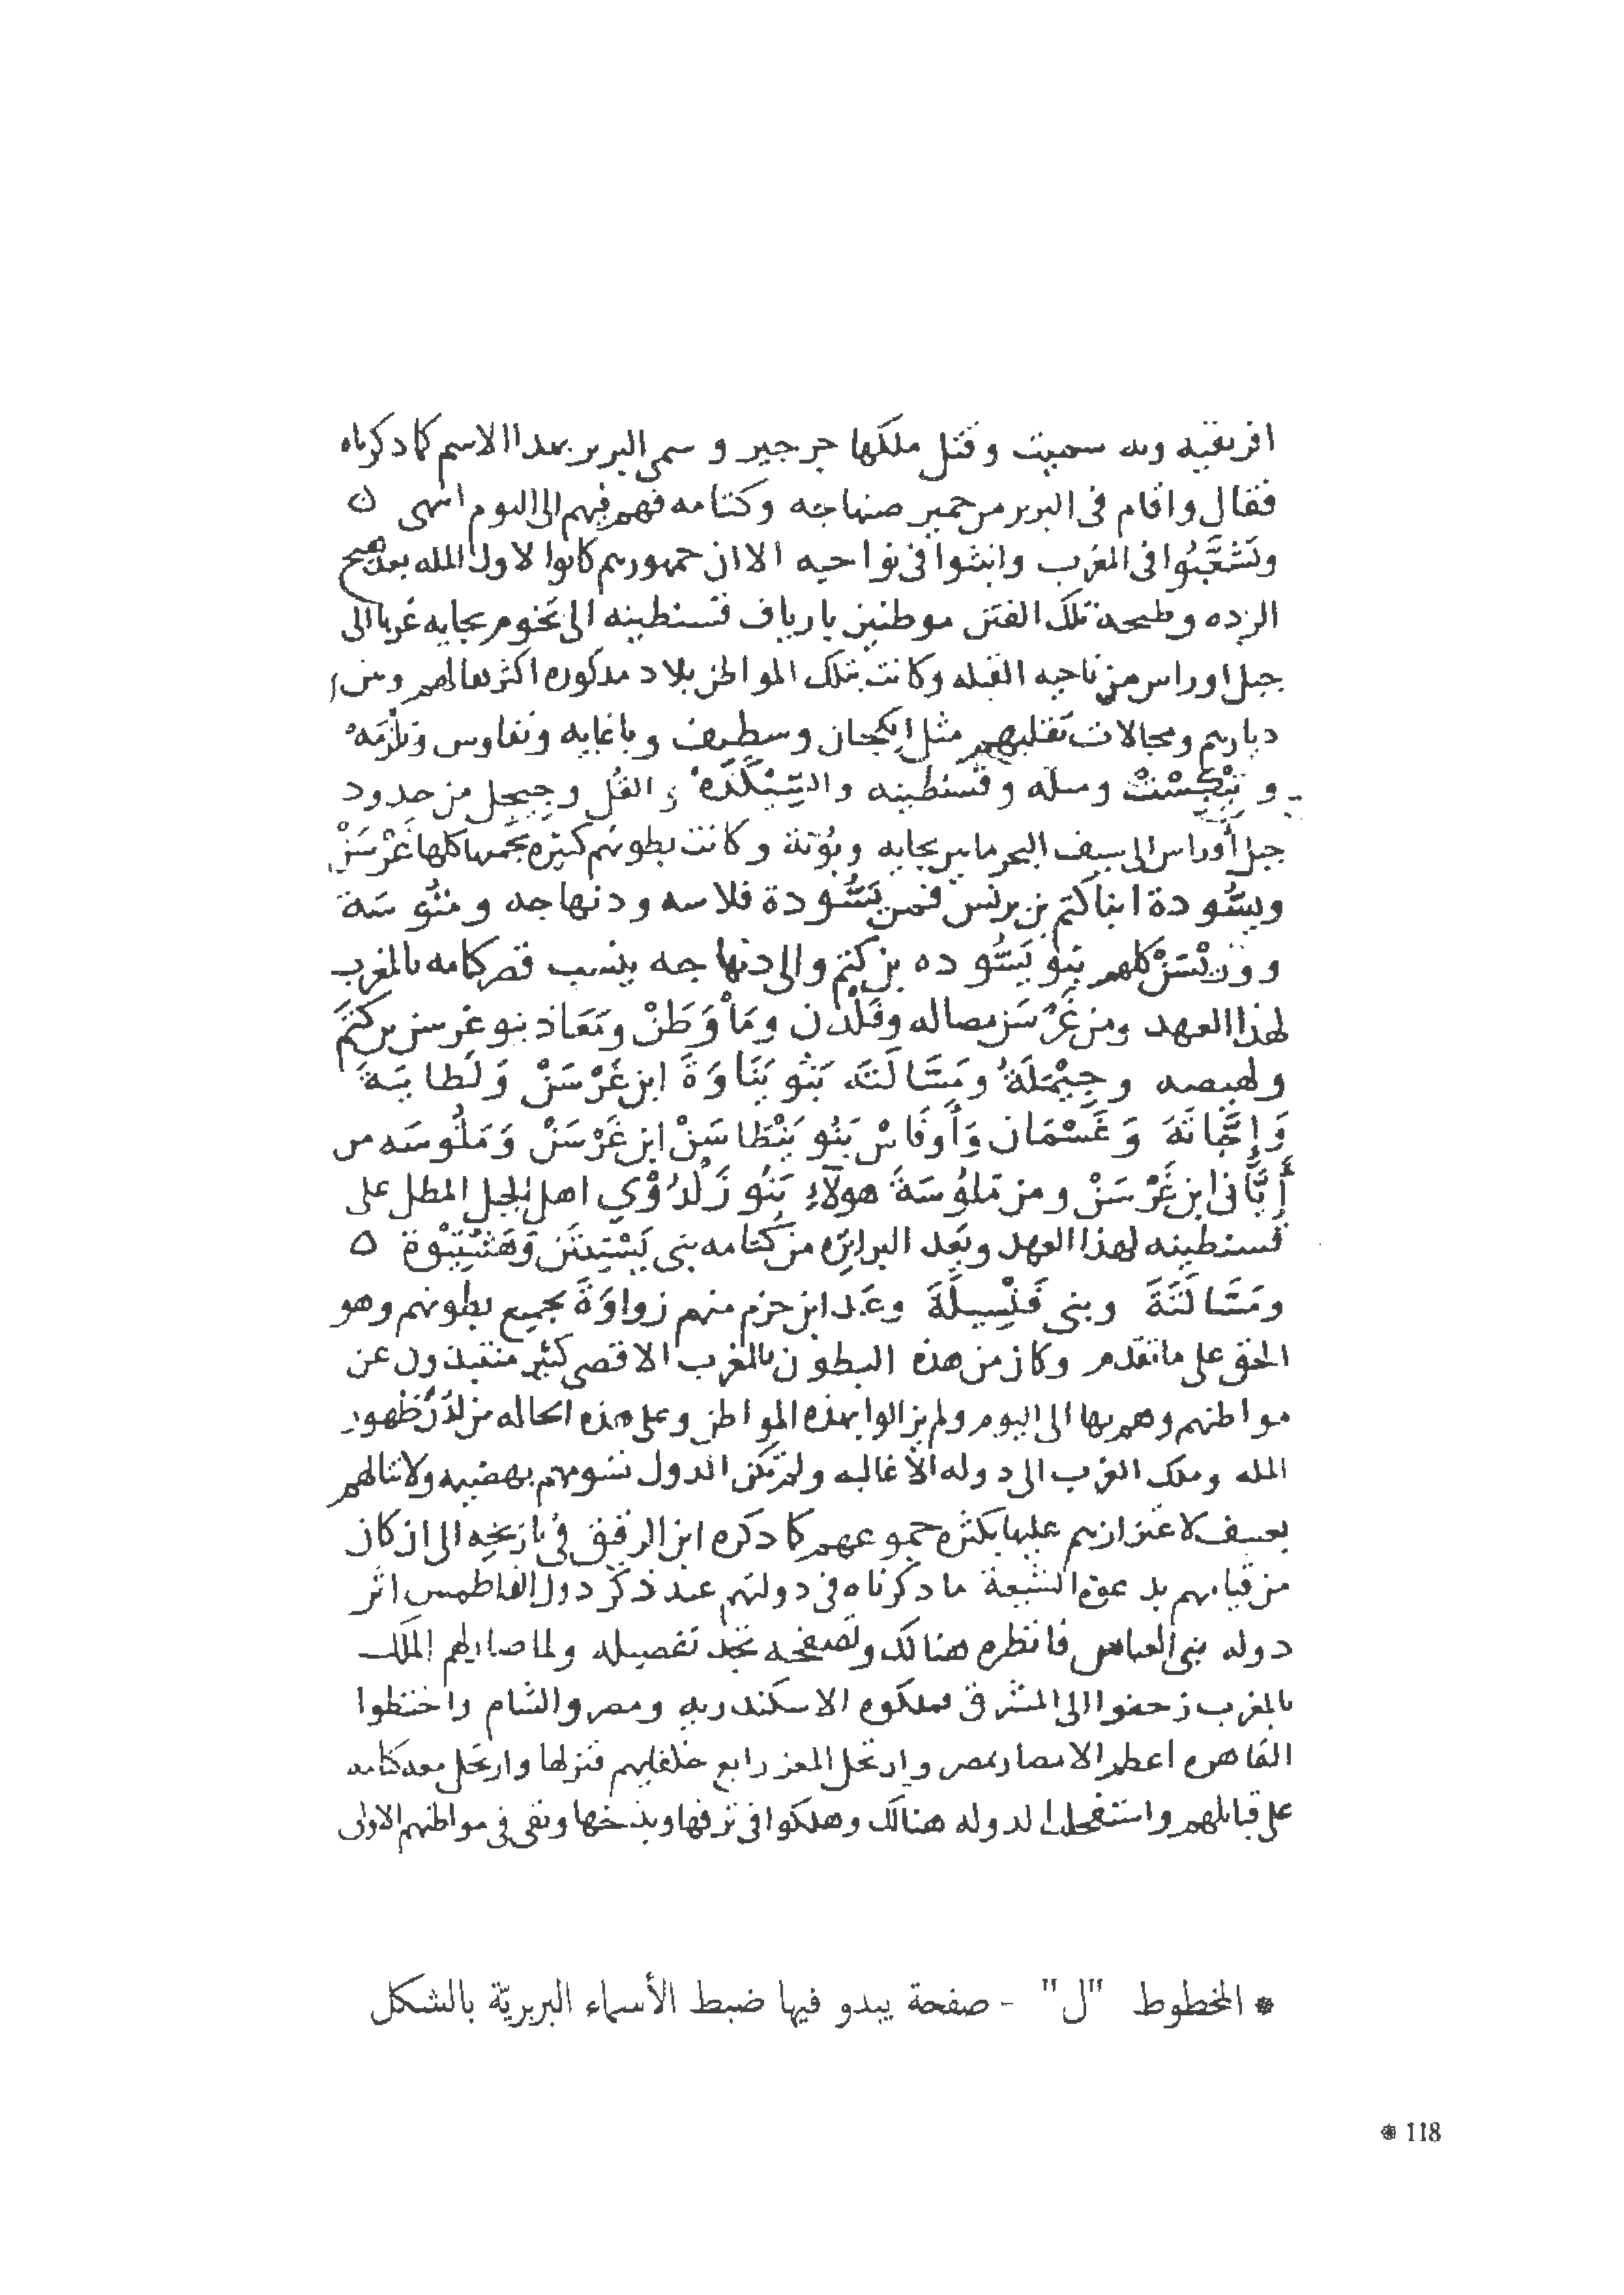 افريقيه وبه سميت وقتل ملكها جرجير وسمى البربر بهذا الاسم كما ذكرناه
فقال واقام فى البربر من حمير صنهاجه وكتامه فهم فيهم الى اليوم انتهى ه
وتَشَعَّبُوا فى المغرب وانبثوا فى نواحيه الا ان جمهورهم كانوا لاول المله بعد هيج
الرده وطيحة تلك الفتن موطنين بارياف قسنطينه الى تخوم بجايه غربا الى
جبل اوراس من ناحيه القبله وكانت بتلك المواطن بلاد مذكوره اكثرها لهم وبين
ديارهم ومجالات تقلبهم مثل ايكجان وسطيف وباغايه ونقاوس وبَلَّزْمَةُ
و تِيْكِسْتْ وميله وقسنطينه والسِّيْكَدَةُ و القُل وجيجل من حدود
جبل أوراس الى سيف البحر ما بين بجايه وبُوْنَة وكانت بطونهم كثيره يجمعها كلها غَرْسَنْ
ويَسُّودة ابنا كتم بن برنس فمن يَسُّودة فلاسه ودنهاجه ومَتُّوسَة
ووَرِيْسَنْ كلهم بَنُو يَسُّوده بن كتم والى دنهاجه ينسب قصر كتامه بالمغرب
لهذا العهد ومن غَرْسَن مصاله وقَلْدن ومَاْوَطَنْ ومَعَاذ بنو غرسن بن كتمَ
ولهيصه وجِيْمْلَةُ ومَسَّالتَه بَنُو يَنَاوَةَ ابن غَرْسَنْ وَلَطايَة
وَإجَّانَةَ وَغَسْمَان وَأوفَاسْ بَنُو يَنْطَاسَنْ ابن غَرْسَنْ وَمَلُوسَه من
أَيَّان ابن غَرْسَنْ ومن مَلوُسَةَ هولآءِ بَنُو زَلْدُوْي اهل الجبل المطل على
قسنطينه لهذا العهد وبَعد البرابِرَه من كُتامه بنى يَسْتِيتَن وَهَشْتِيْوَة ه
ومَسَّالَتَةَ وبنى قَنْسِيلَةَ وعَد ابن حزم منهم زواوَةَ بجميع بطونهم وهو
الحق على ما تقدم وكان من هذه البطون بالمغرب الاقصى كثير منتبذون عن
مواطنهم وهم بها الى اليوم ولم يزالوا بهذه المواطن وعلى هذه الحاله من لَدُنْ ظهور
المله وملك المغرب الى دوله الأغالبه ولم تكن الدول تسومهم بهضيمه ولا تنالهم
بعسف لاعتزازهم عليها بكثره جموعهم كما ذكره ابن الرقيق فى تاريخه الى ان كان
من قيامهم بدعوة الشيعة ما ذكرناه فى دولتهم عند ذكر دول الفاطميين اثر
دوله بنى العباس فانظره هنالك وتصفحه تجد تفصيله ولما صار لهم الملك
بالمغرب زحفوا الى المشرق فملكوا الاسكندريه ومصر والشام واختطوا
القاهره اعظم الامصار بمصر وارتحل المعز رابع خلفايهم فنزلها وارتحل معه كتامه
على قبايلهم واستفحل الدوله هنالك وهلكوا فى ترفها وبذخها وبقى فى مواطنهم الاولى
* المخطوط "ل" - صفحة يبدو فيها ضبط الأسماء البربريّة بالشكل
* 118